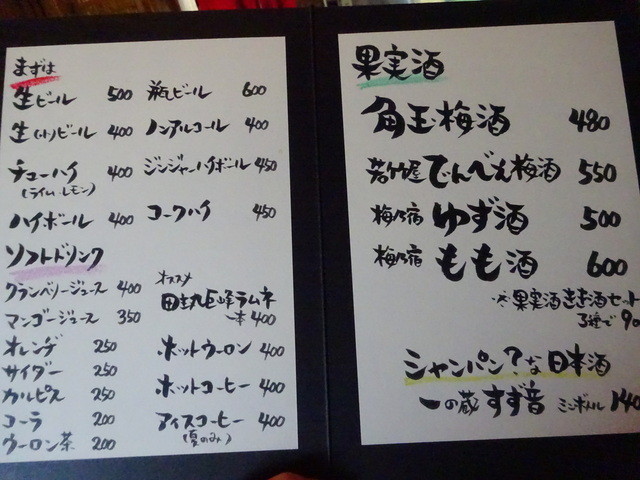 まずは
生ビール 500 瓶ビール 600
生(小)ビール 400 ノンアルコール 400
チューハイ 400 ジンジャーハイボール 450
(ライム・レモン)
ハイボール 400 コークハイ 450
ソフトドリンク
クランベリージュース 400
マンゴージュース 350
オレンヂ 250
サイダー 250
カルピス 250
コーラ 200
ウーロン茶 200
オススメ
田主丸巨峰ラムネ
一本400
ホットウーロン 400
ホットコーヒー 400
アイスコーヒー 400
(夏のみ)
果実酒
角玉梅酒 480
若竹屋 でんべえ梅酒 550
梅乃宿 ゆず酒 500
梅乃宿 もも酒 600
※果実酒きき酒セット
3種で
シャンパン?な日本酒
一の蔵 すず音 ミニボトル